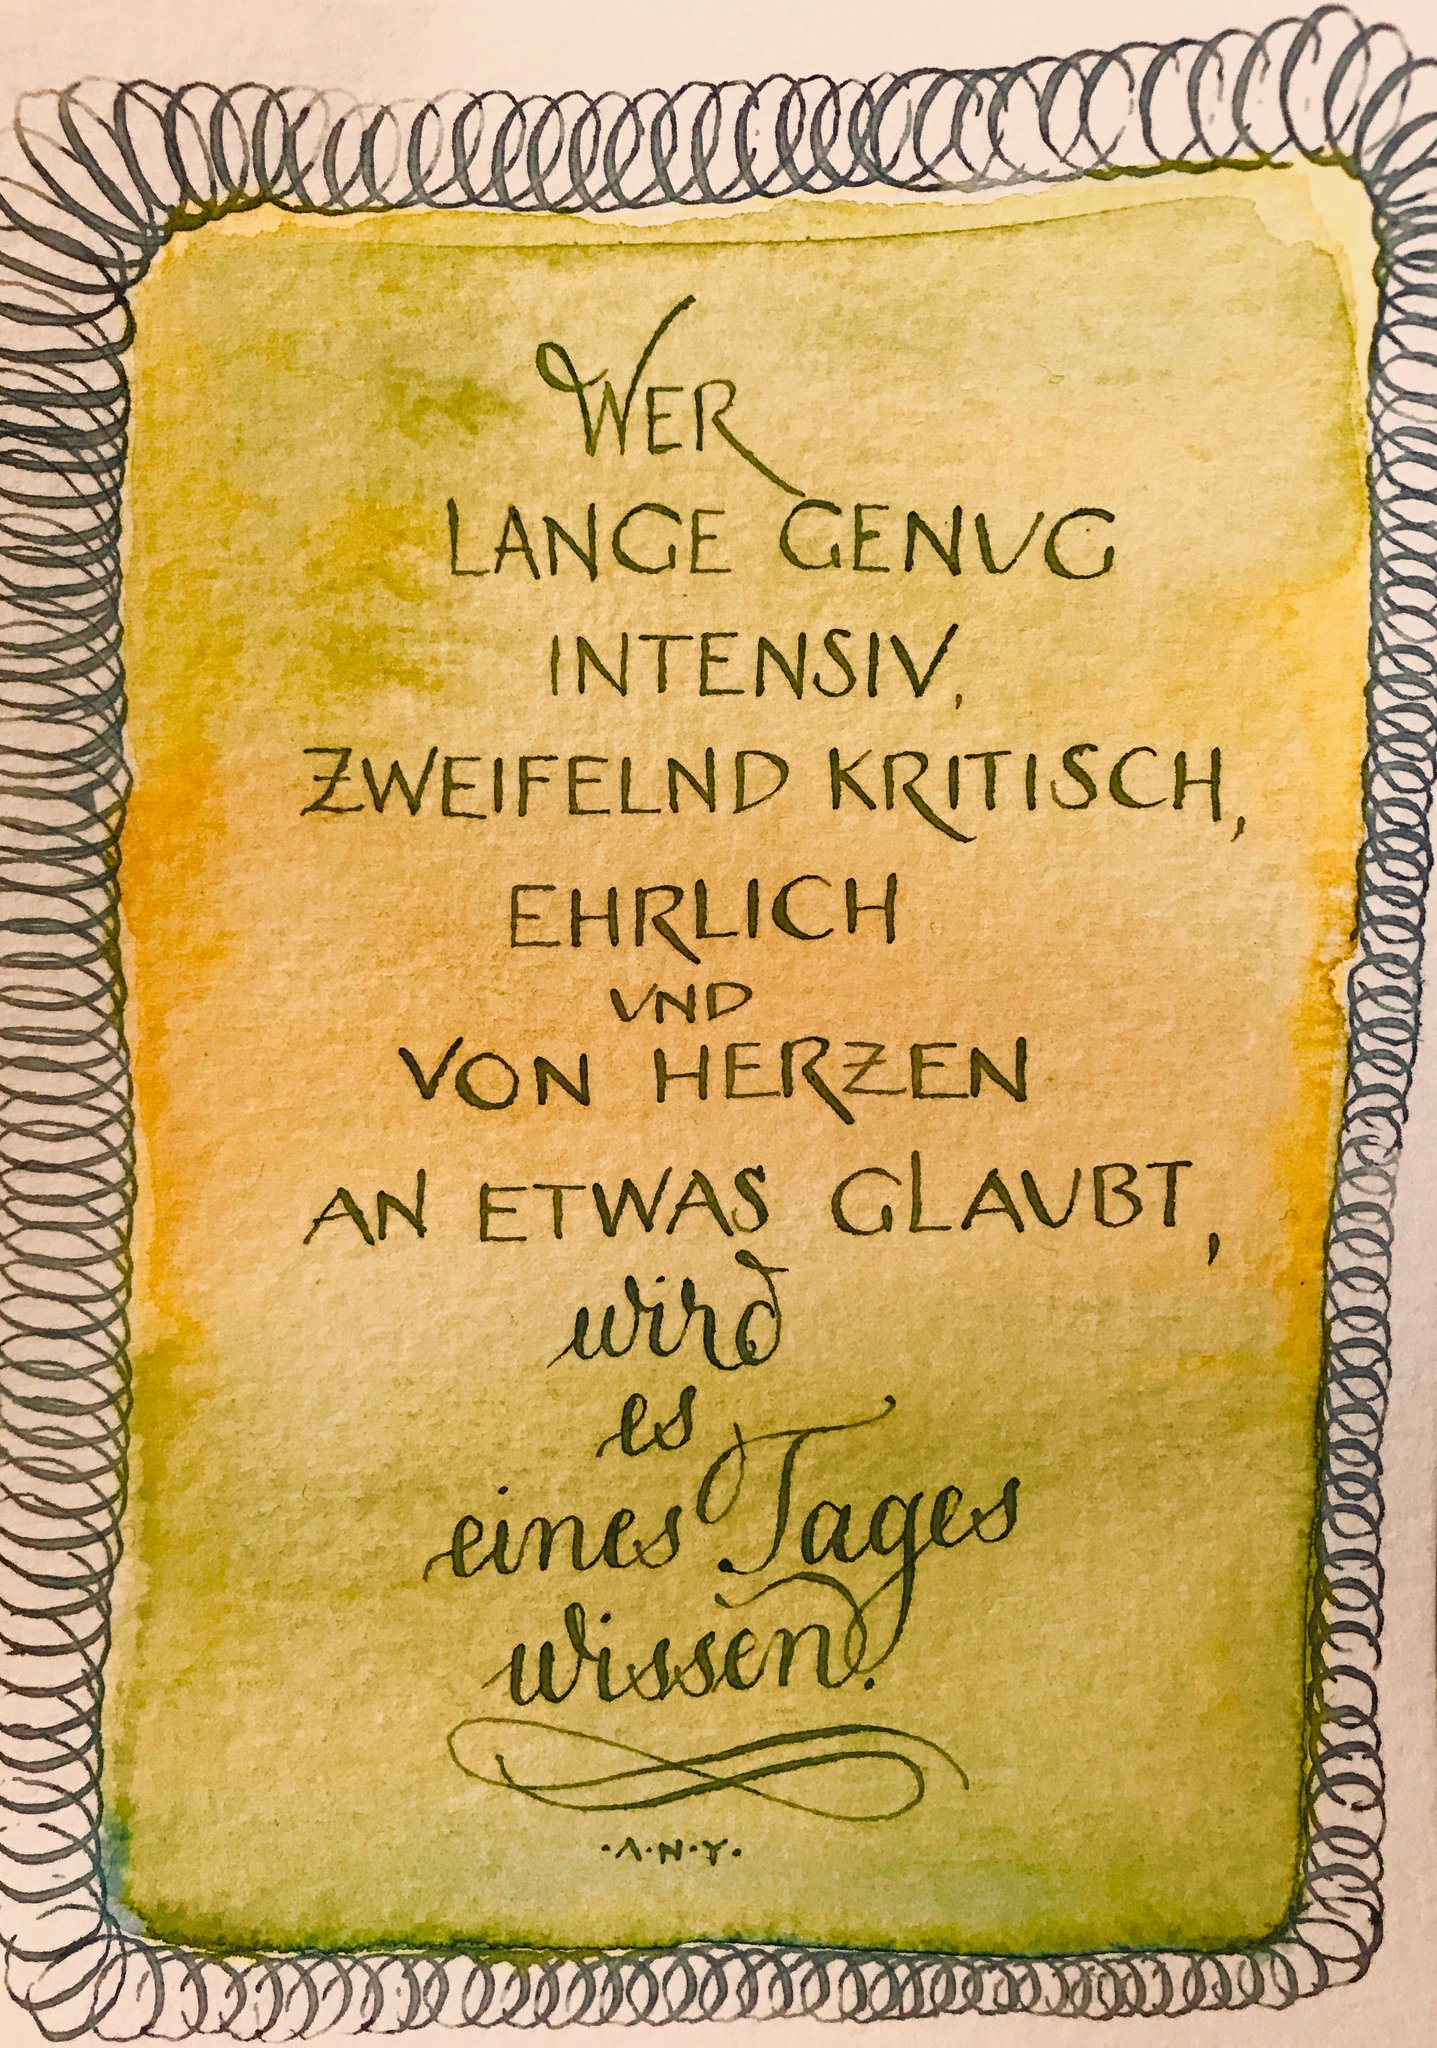 WER
LANGE GENUG
INTENSIV,
ZWEIFELND KRITISCH,
EHRLICH
UND
VON HERZEN
AN ETWAS GLAUBT,
wird
es
eines Tages
wissen.
·A·N·Y·